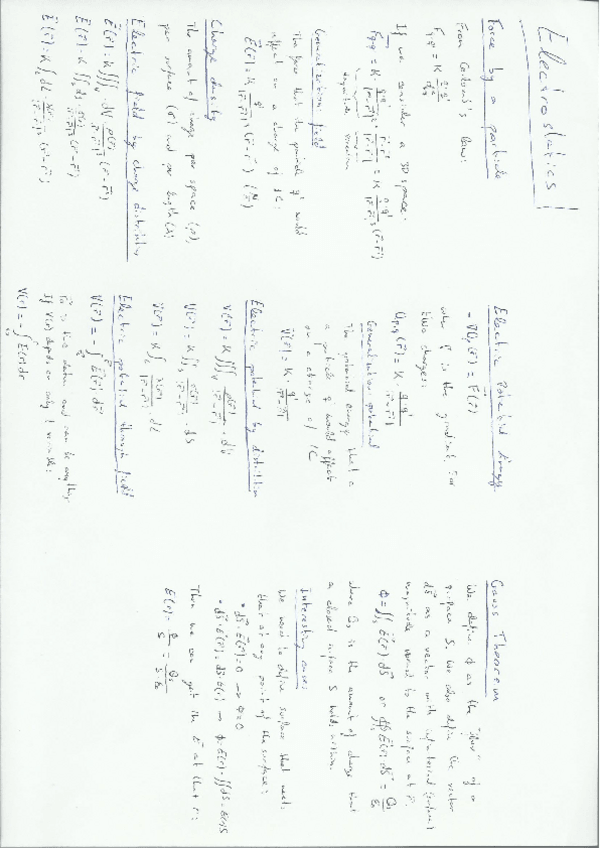 Electrostatics!
Force by a particle
From Coulomb's law:
F = K q·q'
If we consider a 3D space:
F = K · q·q' / |r-r'|² · (r-r') / |r-r'| = K q·q' / |r-r'|³ (r-r')
magnitude direction
Generalization: field
The force that the particle q' would
affect on a charge of 1C:
E(r) = K q' / |r-r'|³ (r-r')
Charge density
The amount of charge per space (ρ),
per surface (σ) and per length (λ)
Electric field by charge distribution
E(r) = K ∭ dV ρ(r') / |r-r'|³ (r-r')
E(r) = K ∬ ds σ(r') / |r-r'|³ (r-r')
E(r) = K ∫ dL λ(r') / |r-r'|³ (r-r')
Electric Potential Energy
- ∇U(r) = F(r)
where ∇ is the gradient. For
two charges:
U(r) = K · q·q' / |r-r'|
Generalization: potential
The potential energy that a
a particle q' would affect
on a charge of 1C
V(r) = K · q' / |r-r'|
Electric potential by distribution
V(r) = K ∭ ρ(r') / |r-r'| · dV
V(r) = K ∬ σ(r') / |r-r'| · ds
V(r) = K ∫ λ(r') / |r-r'| · dL
Electric potential through field
V(r) = - ∫ E(r) dr
is the datum and can be anything
If V(r) depends on only 1 variable:
V(r) = - ∫ E(r) dr
Gauss Theorem
We define ϕ as the "flow" of a
surface S. We also define the vector
ds as a vector with infinitesimal (surface)
magnitude normal to the surface at r:
ϕ = ∬ E(r) ds or ∯ E(r) ds = Qs / ε₀
where Qs is the amount of charge that
a closed surface S holds within.
Interesting cases
We need to define surfaces that meet
that at any point of the surface:
• ds · E(r) = 0 → ϕ = 0
• ds · E(r) = ds · E(r) → ϕ = E(r) · ∬ ds = E(r) S
Then we can get the E at that r:
E(r) = ϕ / S = Qs / S·ε₀